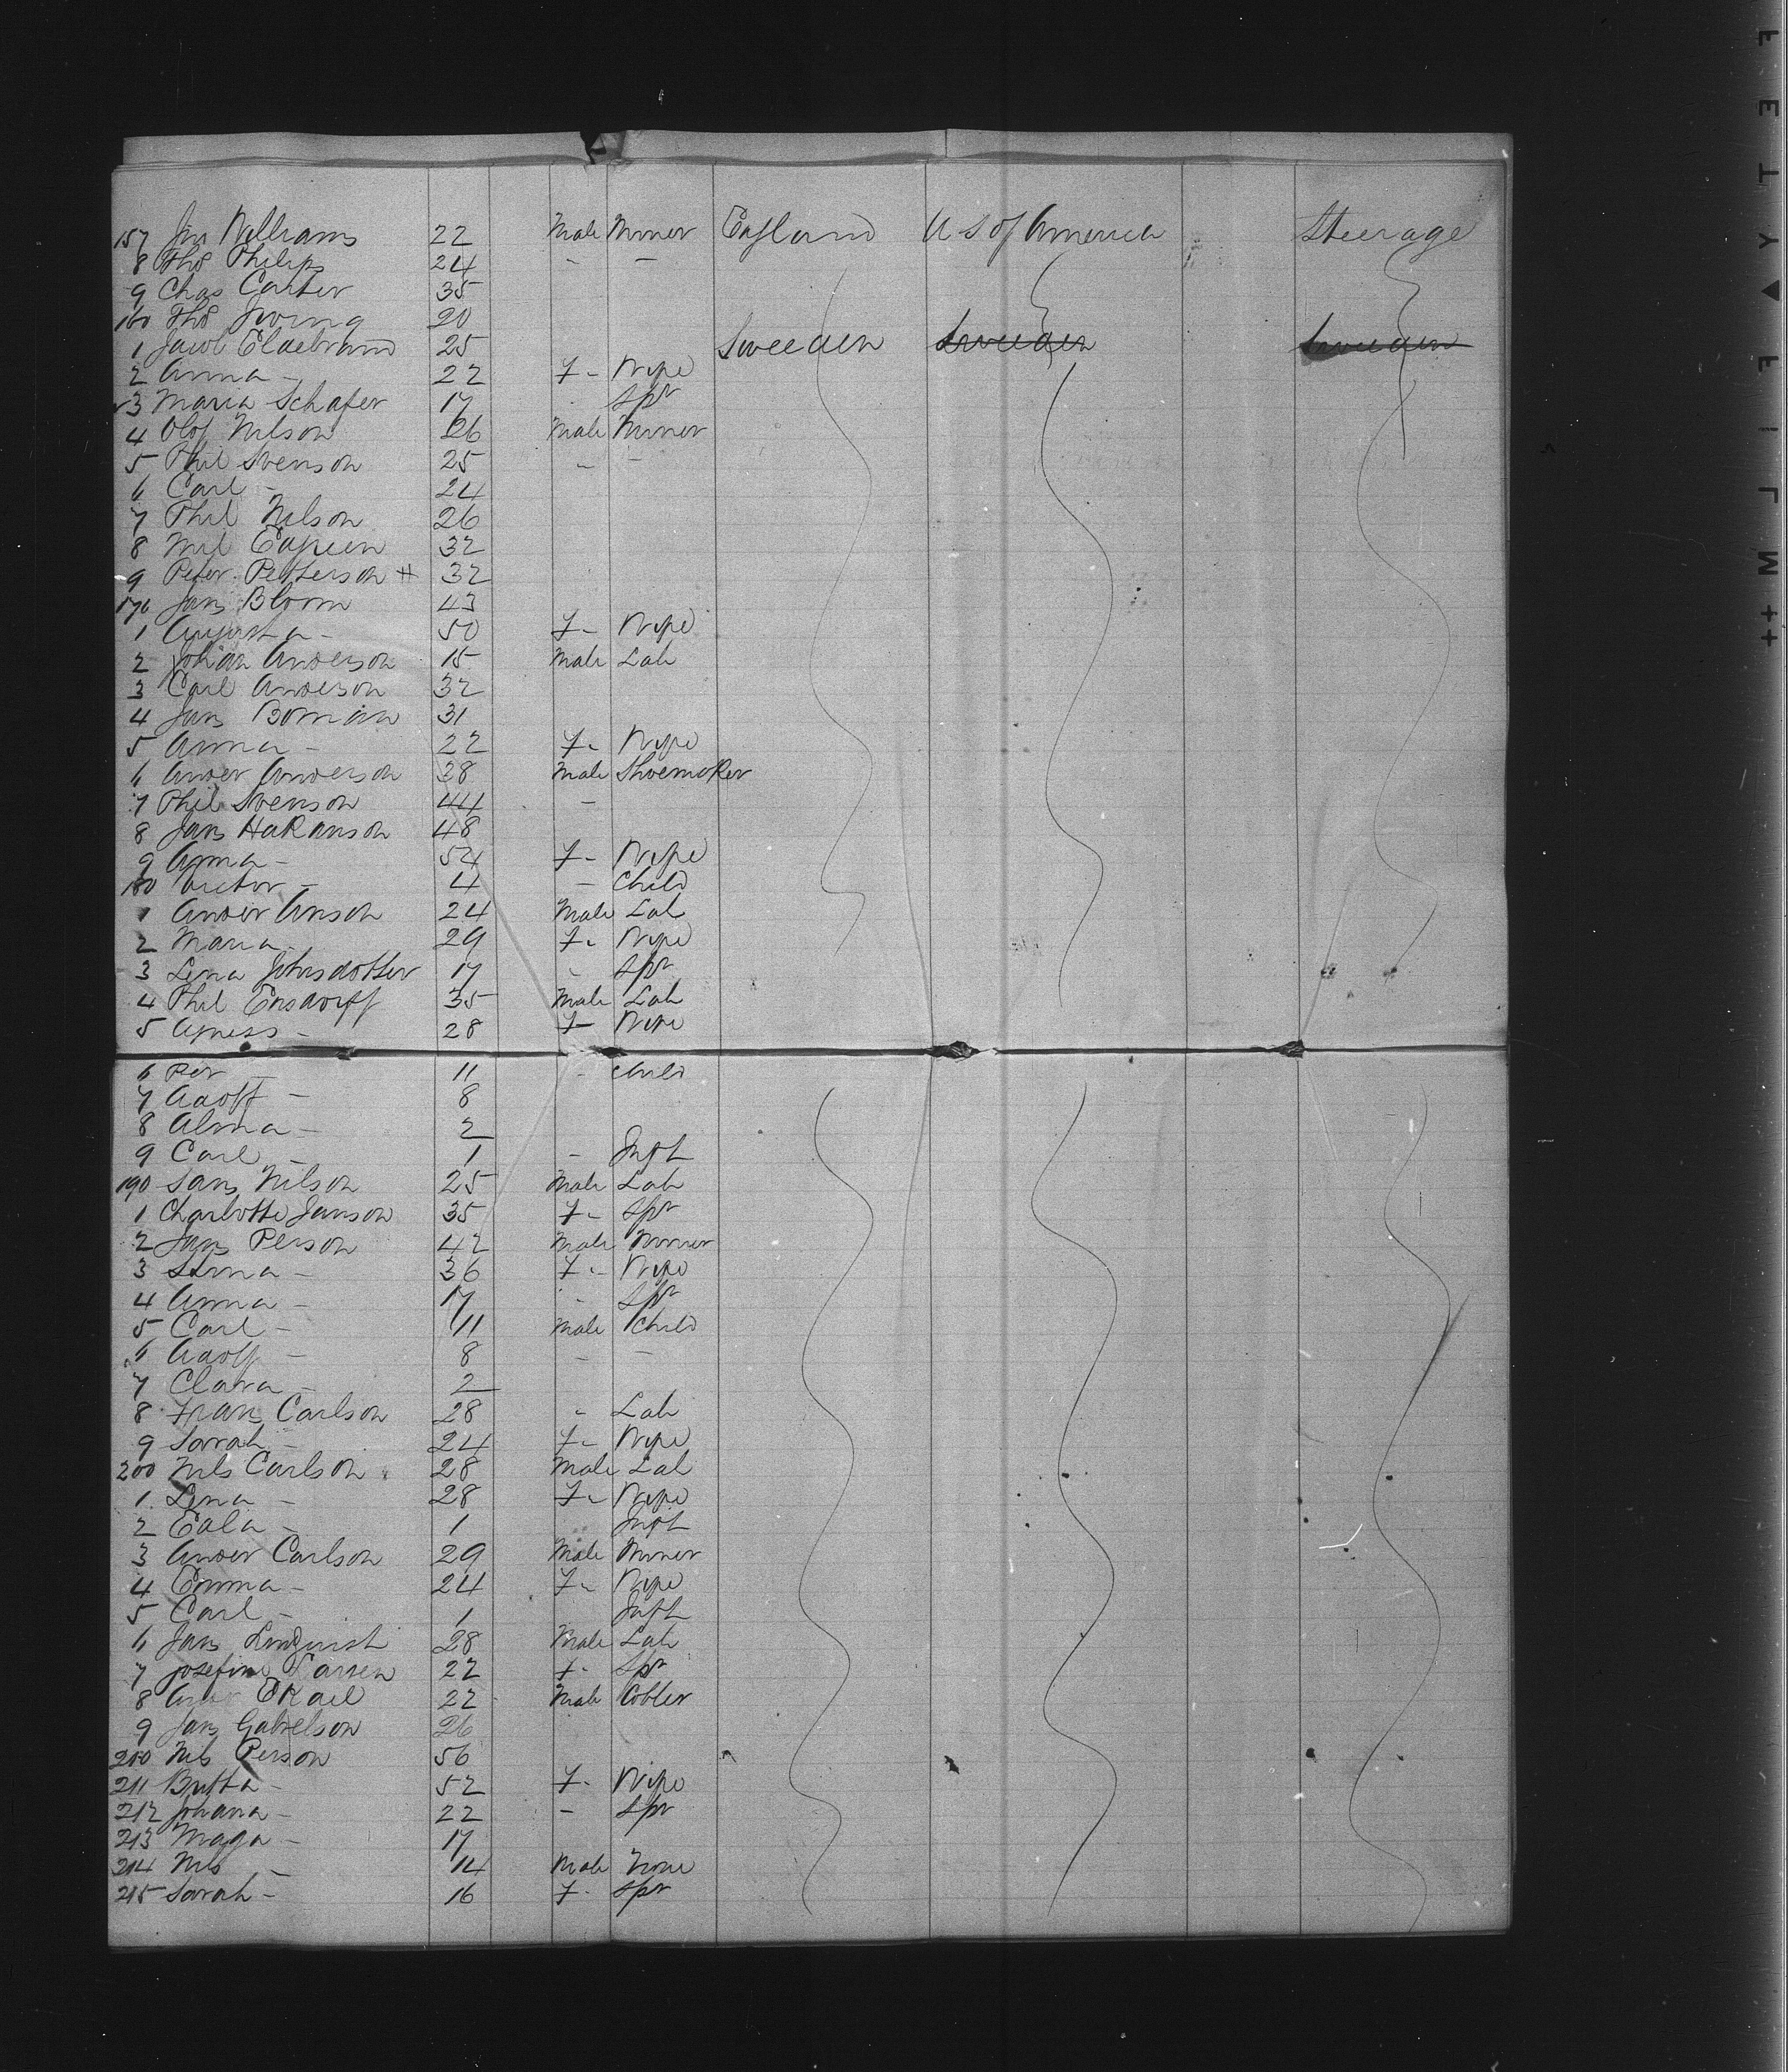 157 Jno Williams 22 Male Miner England U S of America Steerage
8 Thos Philips 24 - -
9 Chas Carter 35
160 Thos Irving 20
1 Jacob Eldebrand 25 Sweeden Sweeden Sweeden
2 Anna - 22 F- Wife
3 Maria Schafer 17 Spr
4 Olof Nilson 26 Male Miner
5 Phil Svenson 25 - -
6 Carl - 24
7 Phil Nilson 26
8 32
9 Peter Petterson # 32
170 Jans Bloom 43
1 Augusta - 50 F- Wife
2 Johan Anderson 15 Male Lab
3 Carl Anderson 32
4 Jans Boman 31
5 Anna - 22 F- Wife
6 Ander Anderson 28 Male Shoemaker
7 Phil Svenson 44 -
8 Jans Hakanson 48
9 Anna - 54 F- Wife
180 Victor - 4 - Child
1 Ander Anson 24 Male Lab
2 Maria - 29 F- Wife
3 Lena Johnsdotter 17 - Spr
4 Phil Ensdorff 35 Male Lab
5 Agness - 28 F- Wife
6 Per - 11 - Child
7 Adolf - 8
8 Alma - 2
9 Carl - 1 - Inft
190 Jans Nilson 25 Male Lab
1 Charlotte Janson 35 F- Spr
2 Jans Person 42 Male Miner
3 Stina - 36 F- Wife
4 Anna - 17 - Spr
5 Carl - 11 Male Child
6 Adolf - 8 - -
7 Clara - 2
8 Frans Carlson 28 - Lab
9 Sarrah - 24 F- Wife
200 Nils Carlson 28 Male Lab
1 Lena - 28 F- Wife
2 - 1 Inft
3 Ander Carlson 29 Male Miner
4 Emma - 24 F- Wife
5 Carl - 1 Inft
6 Jans Lindquist 28 Male Lab
7 Josefine Larsen 22 F- Spr
8 22 Male Cobler
9 Jans Gabrelson 26
210 Nils Person 56
211 Britta - 52 F- Wife
212 Johana - 22 - Spr
213 Maga - 17
214 Nils - 14 Male None
215 Sarah - 16 F- Spr